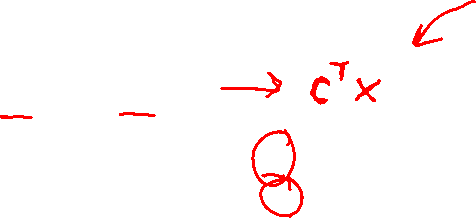 → c^T x